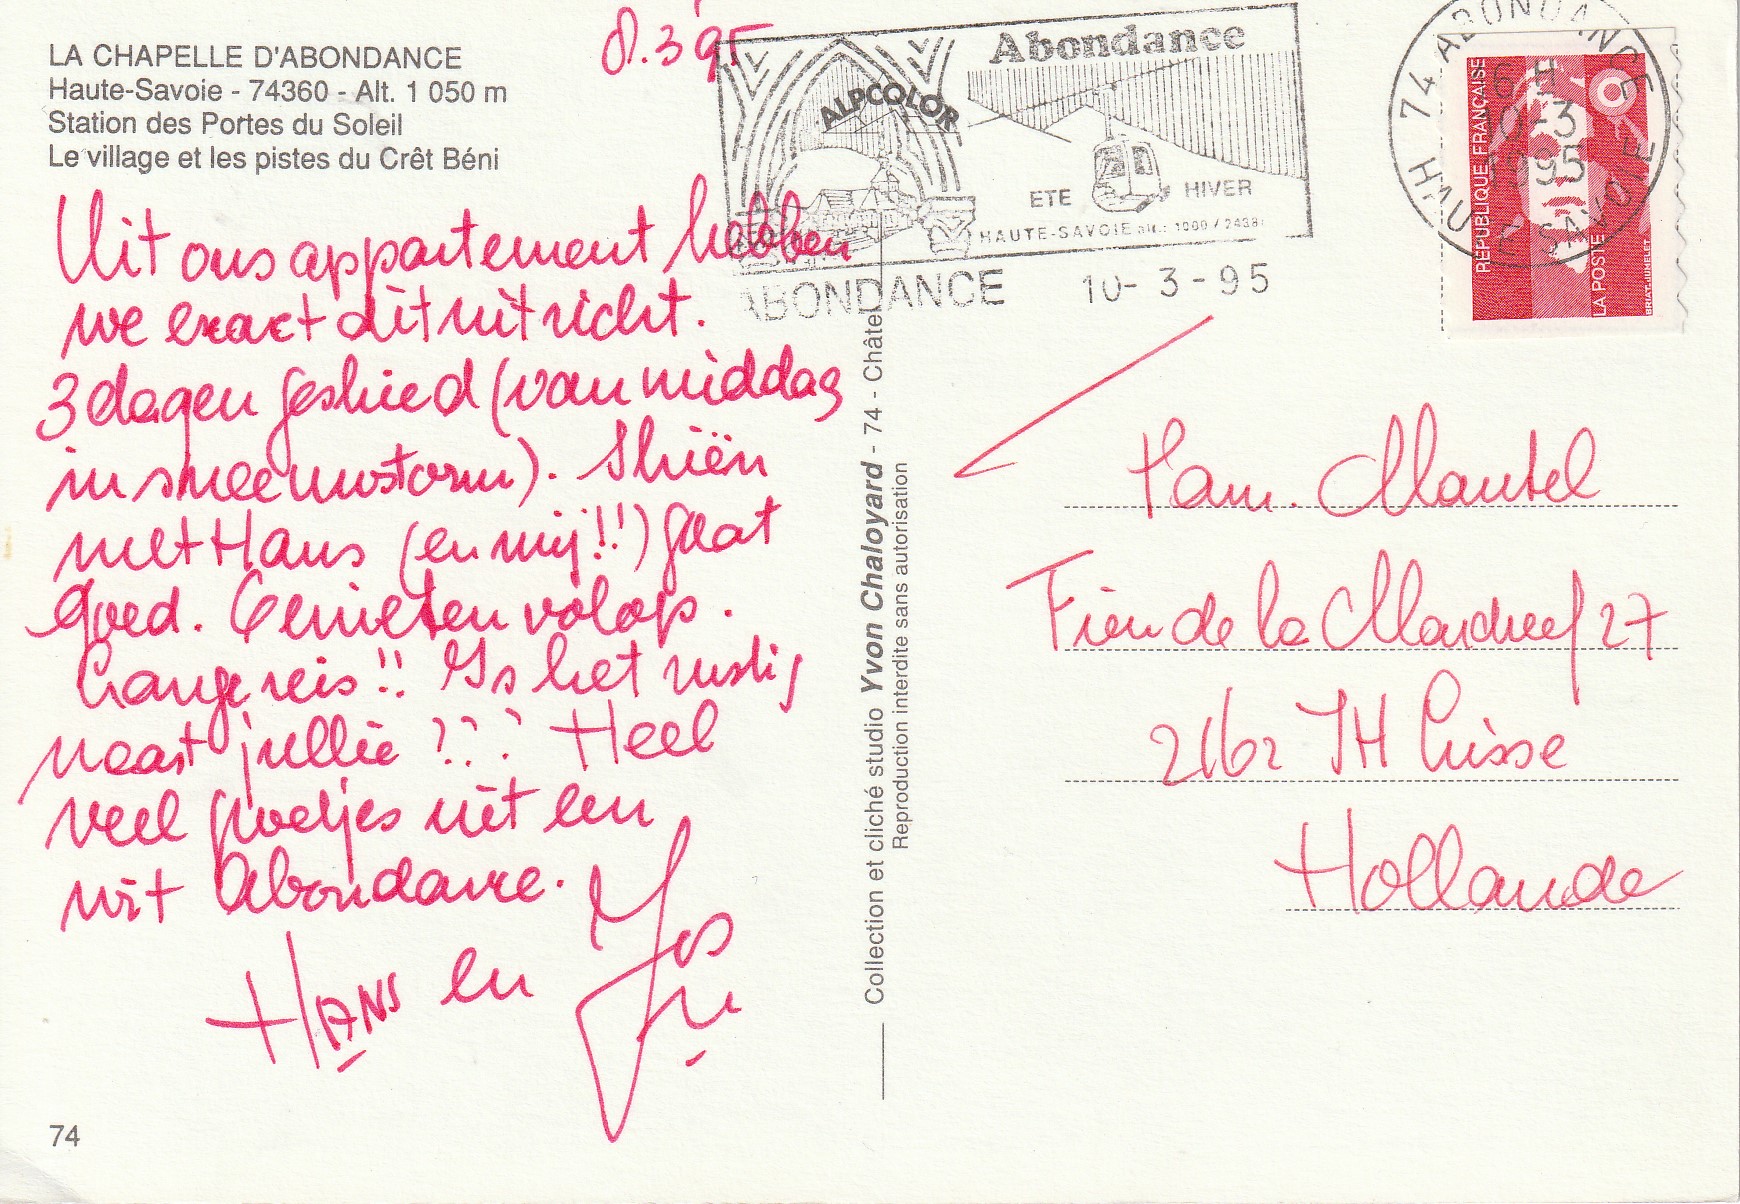 LA CHAPELLE D'ABONDANCE
Haute-Savoie - 74360 - Alt. 1 050 m
Station des Portes du Soleil
Le village et les pistes du Crêt Béni
8.3 95
Uit ons appartement hebben
we exact dit uitzicht.
3 dagen geskied (vanmiddag
in sneeuwstorm). Skiën
met Hans (en mij!!) gaat
goed. Genieten volop.
Lange reis!! Is het rustig
naast jullie ??? Heel
veel groetjes uit een
wit Abondance.
HANS en
Abondance
ALPCOLOR
ETE HIVER
HAUTE-SAVOIE alt.: 1000 /
ABONDANCE 10-3-95
74 ABONDANCE
10-3
95
HAUTE SAVOIE
REPUBLIQUE FRANÇAISE
LA POSTE
BRIAT-JUMELET
Collection et cliché studio Yvon Chaloyard - 74 - Châtel
Reproduction interdite sans autorisation
Fam. Mantel
Fien de la Marchref 27
2162 JH Lisse
Hollande
74